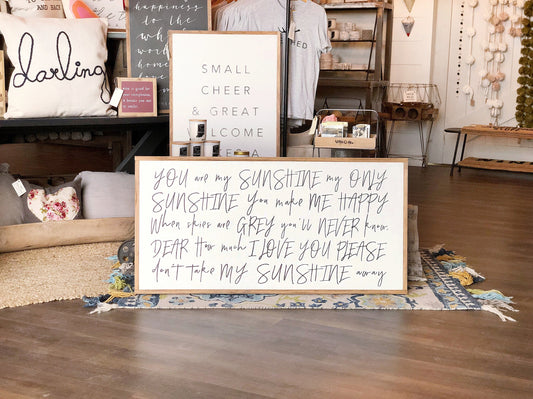 happiness
to the
darling
SMALL
CHEER
& GREAT
WELCOME
YOU are my SUNSHINE my ONLY
SUNSHINE you make ME HAPPY
When skies are GREY you'll NEVER know
DEAR How much I LOVE YOU PLEASE
don't take MY SUNSHINE away